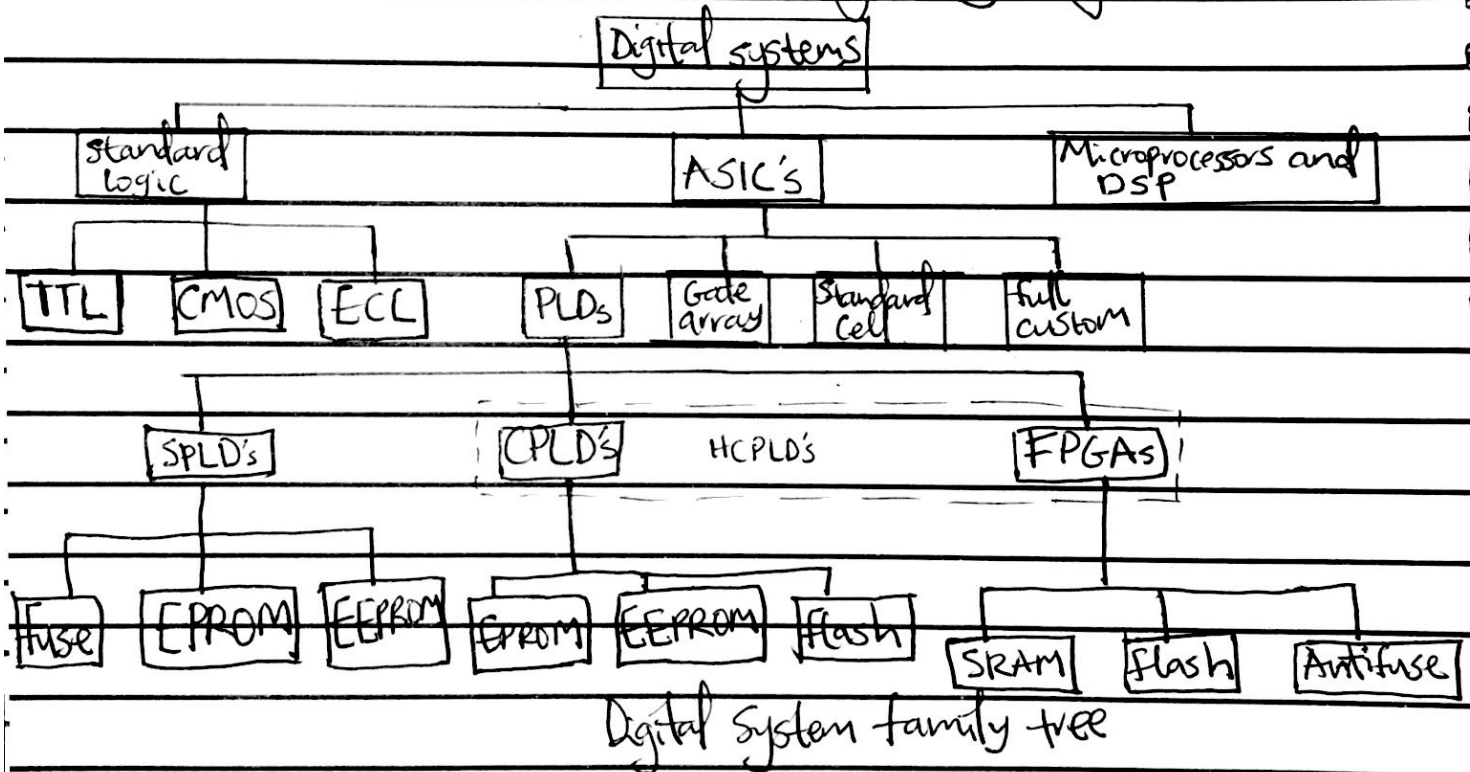 Digital systems
Standard
Logic
ASIC's
Microprocessors and
DSP
TTL
CMOS
ECL
PLDs
Gate
array
Standard
Cell
full
custom
SPLD's
CPLD's
HCPLD's
FPGAs
fuse
EPROM
EEPROM
EPROM
EEPROM
flash
SRAM
flash
Antifuse
Digital System family tree